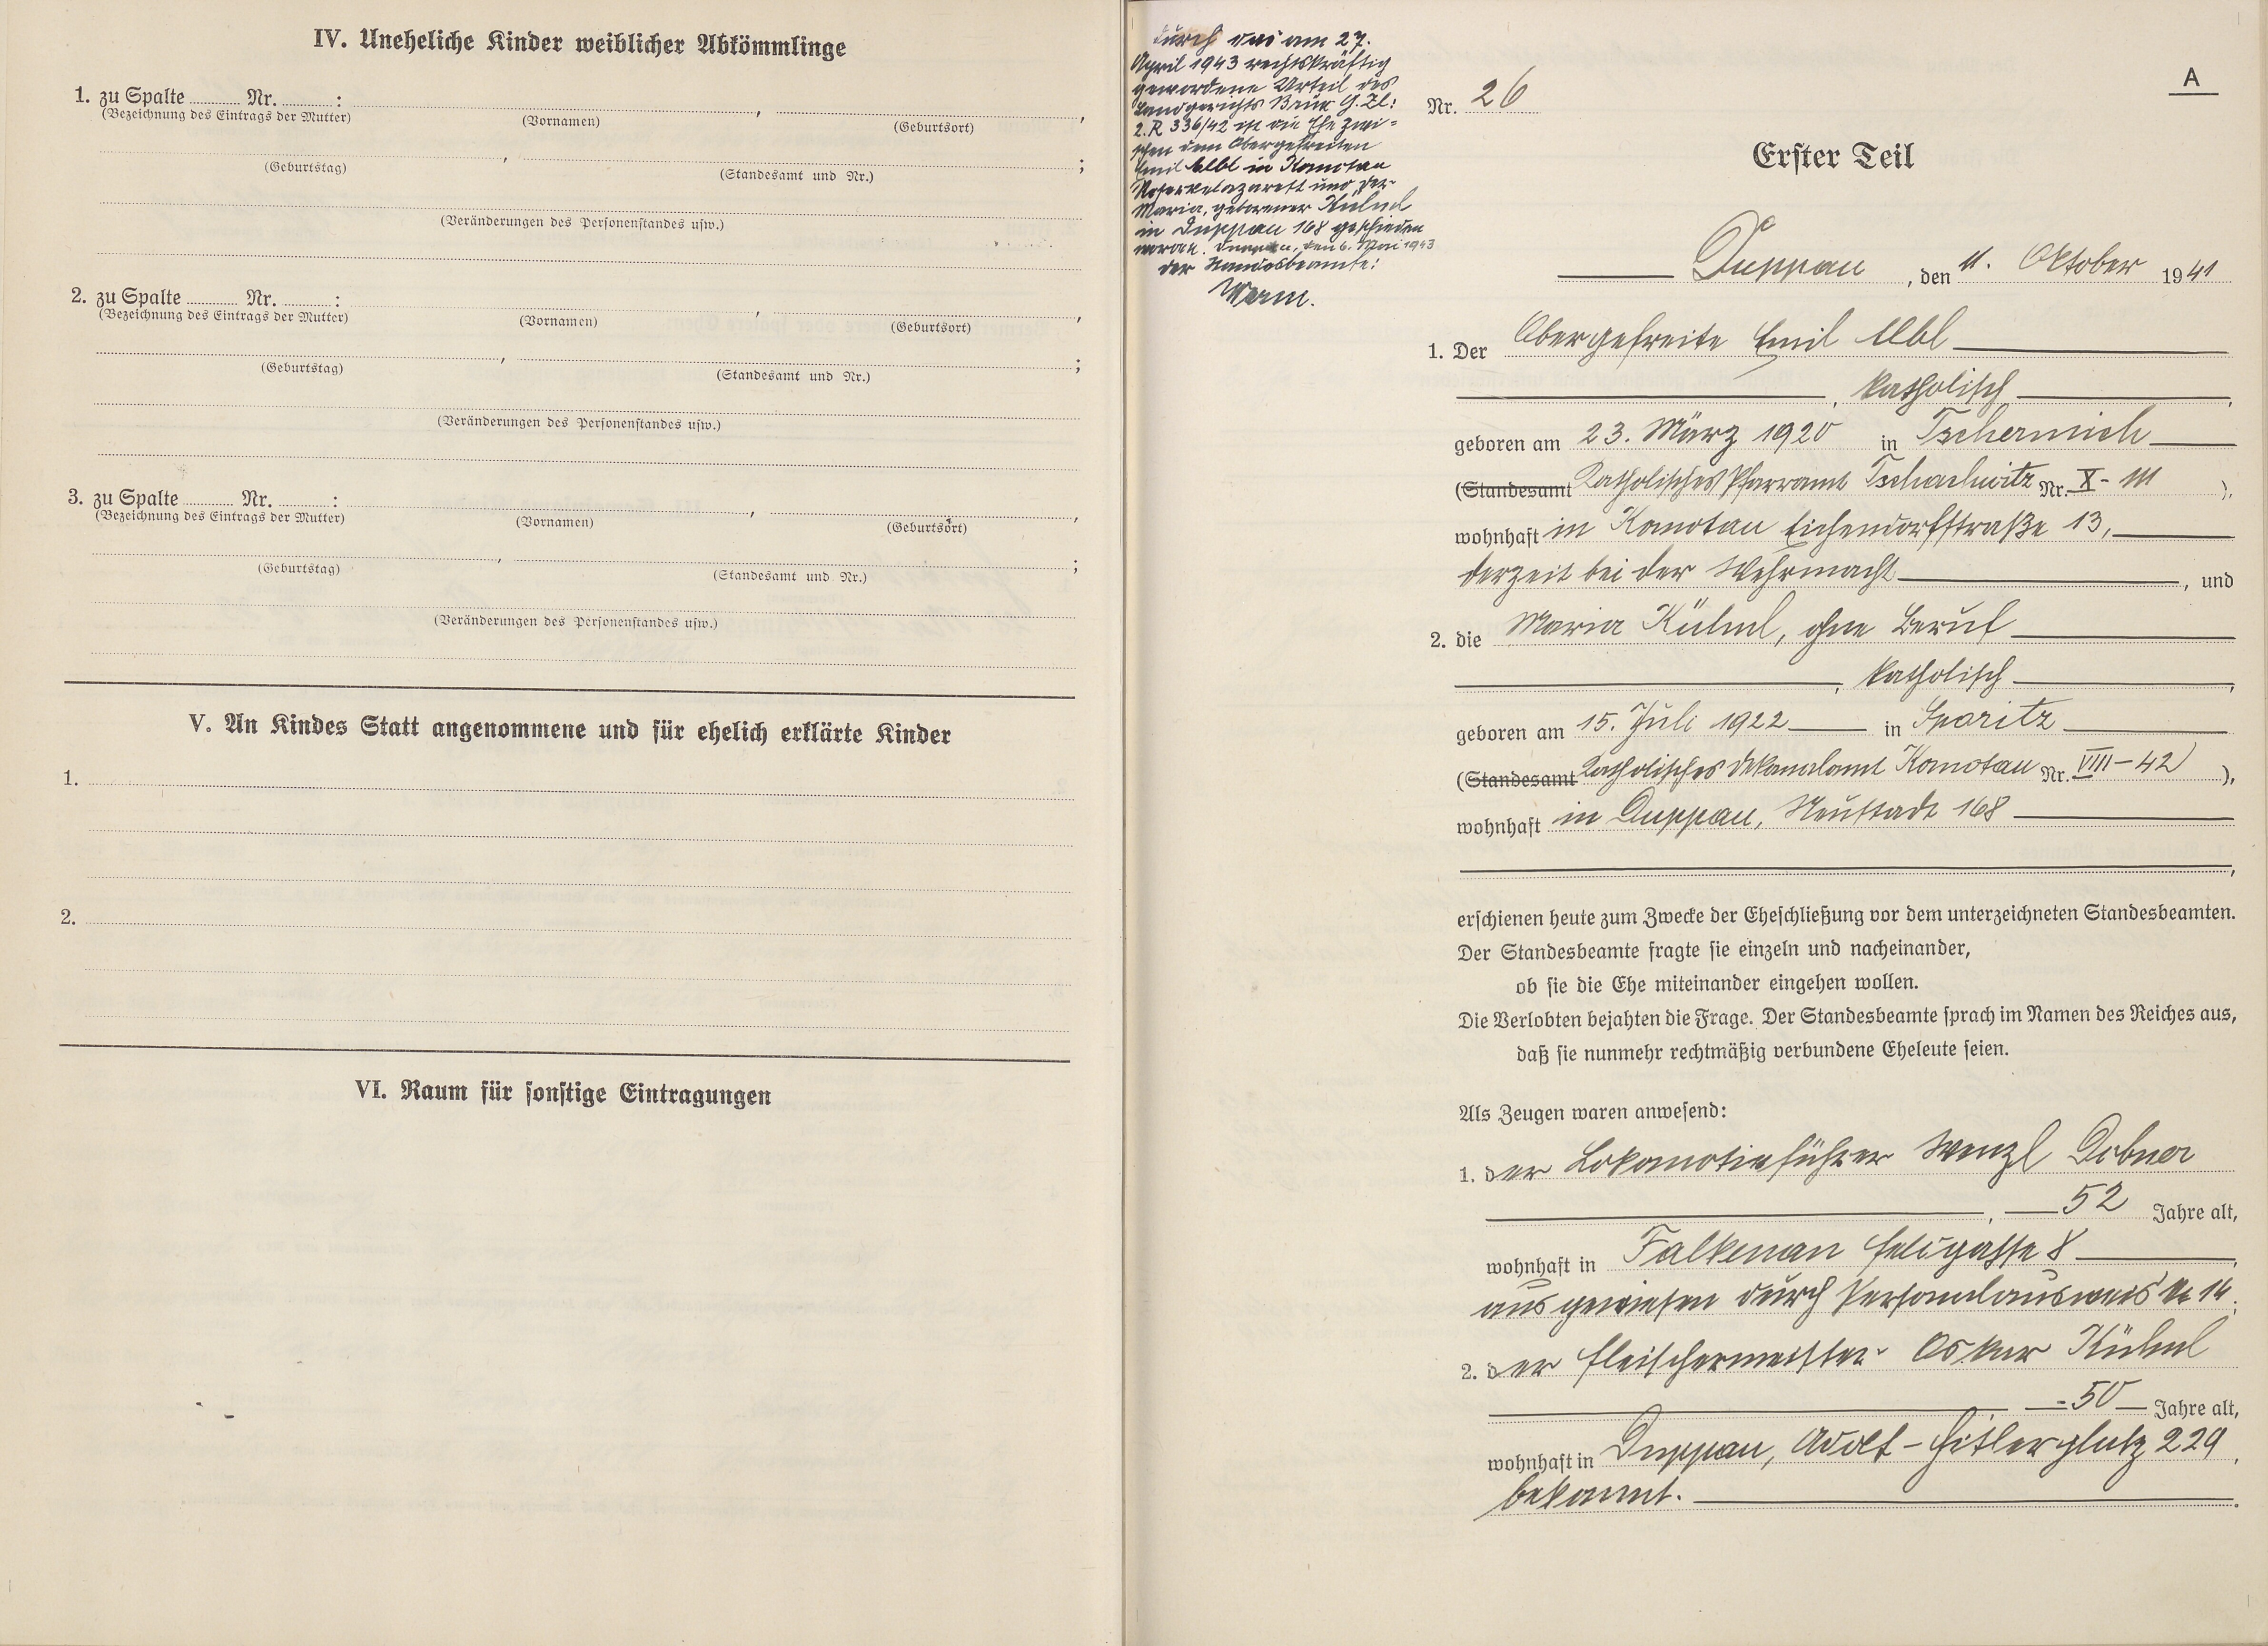 IV. Uneheliche Kinder weiblicher Abkömmlinge
1. zu Spalte Nr. :
(Bezeichnung des Eintrags der Mutter) (Vornamen) , (Geburtsort) ,
(Geburtstag) , (Standesamt und Nr.) ;
(Veränderungen des Personenstandes usw.)
2. zu Spalte Nr. :
(Bezeichnung des Eintrags der Mutter) (Vornamen) , (Geburtsort) ,
(Geburtstag) , (Standesamt und Nr.) ;
(Veränderungen des Personenstandes usw.)
3. zu Spalte Nr. :
(Bezeichnung des Eintrags der Mutter) (Vornamen) , (Geburtsort) ,
(Geburtstag) , (Standesamt und Nr.) ;
(Veränderungen des Personenstandes usw.)
V. An Kindes Statt angenommene und für ehelich erklärte Kinder
1.
2.
VI. Raum für sonstige Eintragungen
Durch das am 27.
April 1943 rechtskräftig
gewordene Urteil des
Landgerichts Brüx G. Zl:
2. R 336/42 ist die Ehe zwi-
schen dem Obergefreiten
Emil Albl in Komotau
Reservelazarett und der
Maria, geborener Kühnl
in Duppau 168 geschieden
worden. Duppau, den 6. Mai 1943
der Standesbeamte:
A
Nr. 26
Erster Teil
Duppau , den 11. Oktober 1941
1. Der Obergefreite Emil Albl
, katholisch ,
geboren am 23. März 1920 in Tschermich
(Standesamt Katholisches Pfarramt Tschachwitz Nr. X - 111 ),
wohnhaft in Komotau Eichendorfstraße 13,
derzeit bei der Wehrmacht , und
2. die Maria Kühnl, ohne Beruf
, katholisch ,
geboren am 15. Juli 1922 in Sporitz
(Standesamt Katholisches Dekanalamt Komotau Nr. VIII - 42) ),
wohnhaft in Duppau, Neustadt 168
,
erschienen heute zum Zwecke der Eheschließung vor dem unterzeichneten Standesbeamten.
Der Standesbeamte fragte sie einzeln und nacheinander,
ob sie die Ehe miteinander eingehen wollen.
Die Verlobten bejahten die Frage. Der Standesbeamte sprach im Namen des Reiches aus,
daß sie nunmehr rechtmäßig verbundene Eheleute seien.
Als Zeugen waren anwesend:
1. der Lokomotivführer Wenzl Dobner
, 52 Jahre alt,
wohnhaft in Falkenau Feldgasse 8 ,
ausgewiesen durch Personalausweis ;
2. der Fleischermeister Oskar Kühnl
50 Jahre alt,
wohnhaft in Duppau, Adolf-Hitlerplatz 229 ,
bekannt. .